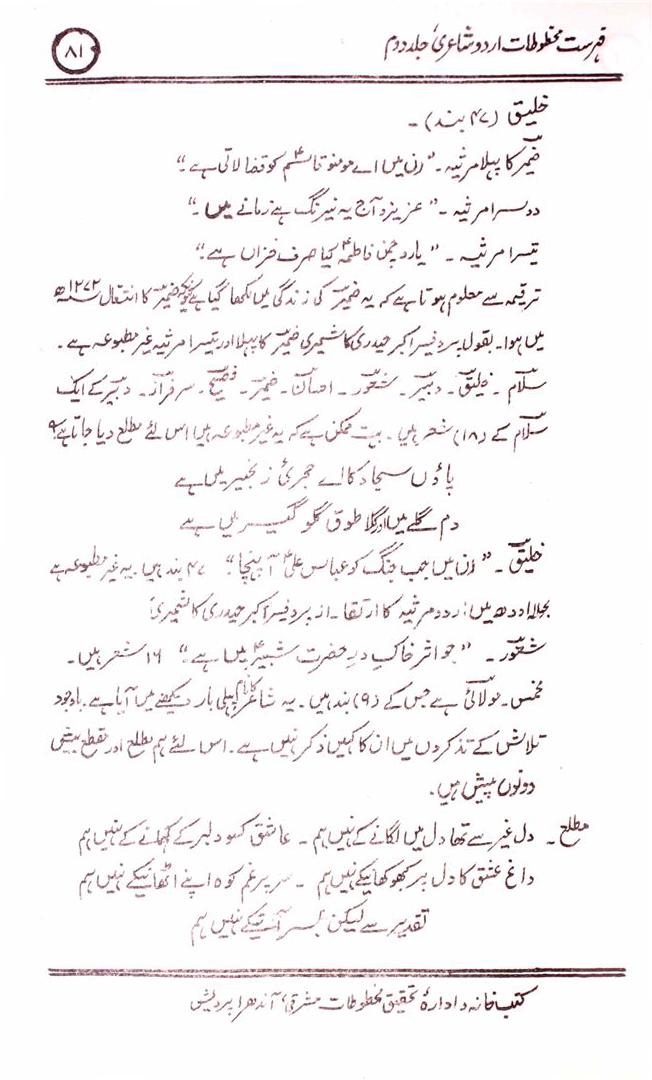 فہرست مخطوطات اردو شاعری، جلد دوم
۸۱
خلیق (۴۷ بند) ۔
ضمیر کا پہلا مرثیہ ۔ "رن میں اے مومنو قاسمؑ کو قضا لاتی ہے"
دوسرا مرثیہ ۔ "عزیزو آج یہ نیرنگ ہے زمانے میں ۔"
تیسرا مرثیہ ۔ "یارو چمن فاطمہؑ کیا صرف خزاں ہے"
ترقیمہ سے معلوم ہوتا ہے کہ یہ ضمیر کی زندگی میں لکھا گیا ہے کیونکہ ضمیر کا انتقال ۱۲۷۲ھ
میں ہوا ۔ بقول پروفیسر اکبر حیدری کاشمیری ضمیر کا پہلا اور تیسرا مرثیہ غیر مطبوعہ ہے ۔
سلام ۔ خلیق ۔ دبیر ۔ شعور ۔ احسان ۔ ضمیر ۔ فصیح ۔ سرفراز ۔ دبیر کے ایک
سلام کے (۱۸) شعر ہیں ۔ بہت ممکن ہے کہ یہ غیر مطبوعہ ہیں اس لئے مطلع دیا جاتا ہے
پاؤں سجاد کا اے مجرئ زنجیر میں ہے
دم گلے میں اور گلا طوق گلو گیر میں ہے
خلیق ۔ "رن میں جب جنگ کو عباس علیؑ آ پہنچا" ۴۷ بند ہیں ۔ یہ غیر مطبوعہ ہے
بحوالہ اودھ میں اردو مرثیہ کا ارتقا ۔ از پروفیسر اکبر حیدری کاشمیری
شعور ۔ "جو اثر خاک در حضرت شبیرؑ میں ہے" ۱۶ شعر ہیں ۔
مخمس ۔ مولائی ہے جس کے (۹) بند ہیں ۔ یہ شاعر کا نام پہلی بار دیکھنے میں آیا ہے ۔ باوجود
تلاش کے تذکروں میں ان کا کہیں ذکر نہیں ہے ۔ اس لئے ہم مطلع اور مقطع
دونوں پیش ہیں ۔
مطلع ۔ دل غیر سے تھا دل میں لگانے کے نہیں ہم ۔ عاشق کسو دلبر کے کہانے کے نہیں ہم
داغ عشق کا دل پر کبھو کھانیکے نہیں ہم ۔ سر پر غم کوہ اپنے اٹھانیکے نہیں ہم
تقدیر سے لیکن بسر آنیکے نہیں ہم
کتب خانہ و ادارۂ تحقیق مخطوطات مشرقی، آندھرا پردیش